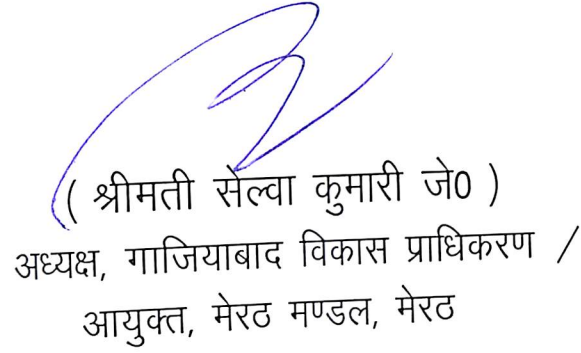 ( श्रीमती सेल्वा कुमारी जे0 )
अध्यक्ष, गाजियाबाद विकास प्राधिकरण /
आयुक्त, मेरठ मण्डल, मेरठ